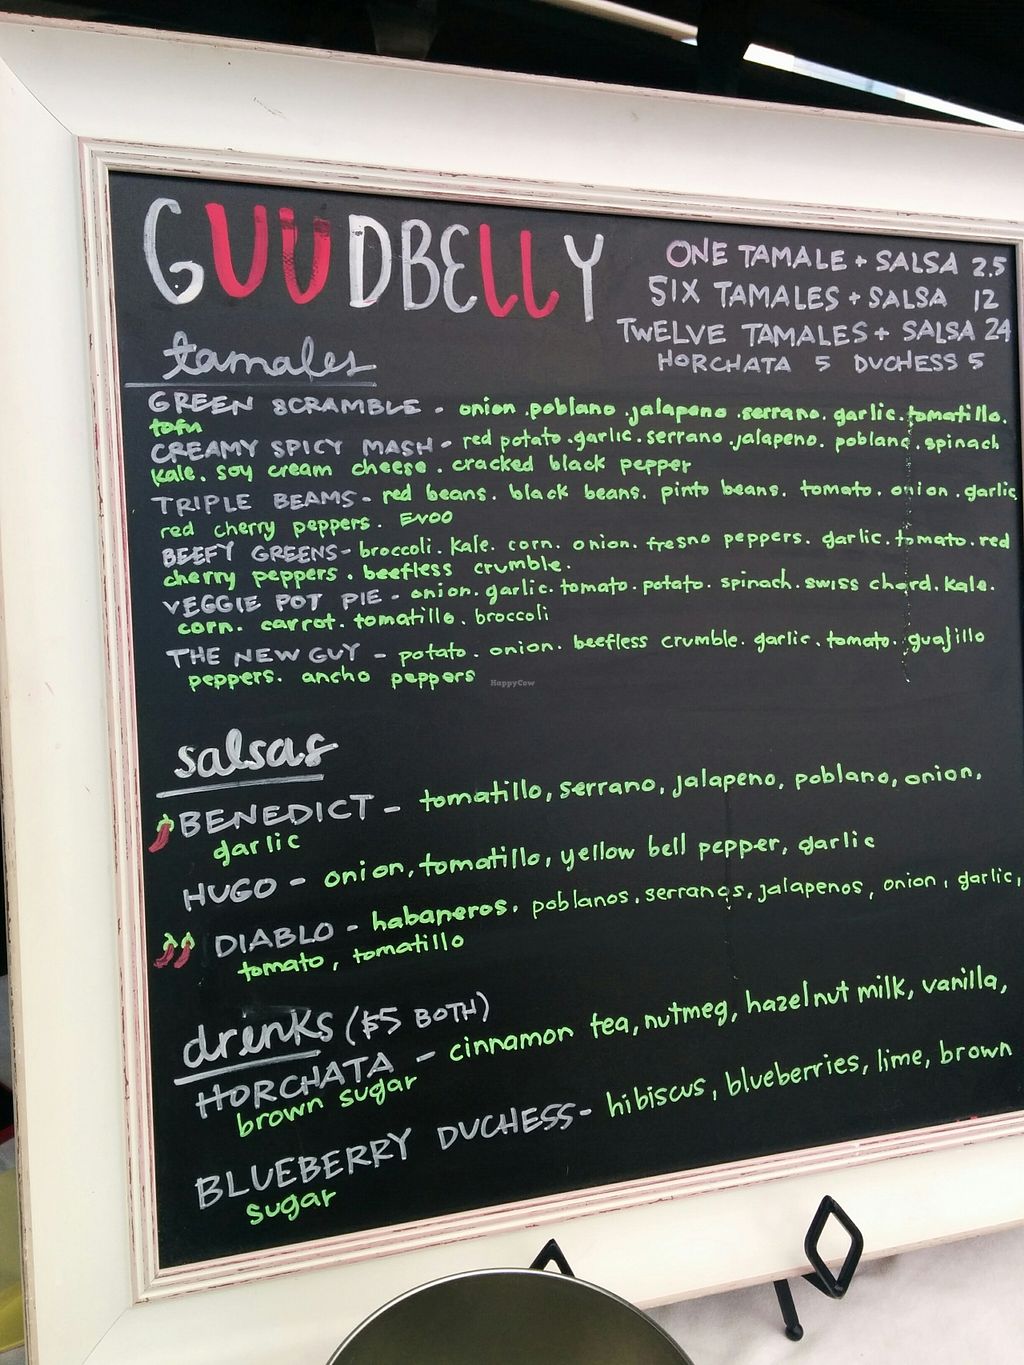 GUUDBELLY
ONE TAMALE + SALSA 2.5
SIX TAMALES + SALSA 12
TWELVE TAMALES + SALSA 24
HORCHATA 5 DUCHESS 5
tamales
GREEN SCRAMBLE - onion . poblano . jalapeno . serrano . garlic . tomatillo .
tofu
CREAMY SPICY MASH - red potato . garlic . serrano . jalapeno . poblano . spinach
kale . soy cream cheese . cracked black pepper
TRIPLE BEAMS - red beans . black beans . pinto beans . tomato . onion . garlic
red cherry peppers . EVOO
BEEFY GREENS - broccoli . kale . corn . onion . fresno peppers . garlic . tomato . red
cherry peppers . beefless crumble .
VEGGIE POT PIE - onion . garlic . tomato . potato . spinach . swiss chard . kale .
corn . carrot . tomatillo . broccoli
THE NEW GUY - potato . onion . beefless crumble . garlic . tomato . guajillo
peppers . ancho peppers
HappyCow
salsas
BENEDICT - tomatillo, serrano, jalapeno, poblano, onion,
garlic
HUGO - onion, tomatillo, yellow bell pepper, garlic
DIABLO - habaneros . poblanos . serranos, jalapenos, onion, garlic,
tomato, tomatillo
drenks ($5 BOTH)
HORCHATA - cinnamon tea, nutmeg, hazelnut milk, vanilla,
brown sugar
BLUEBERRY DUCHESS - hibiscus, blueberries, lime, brown
sugar